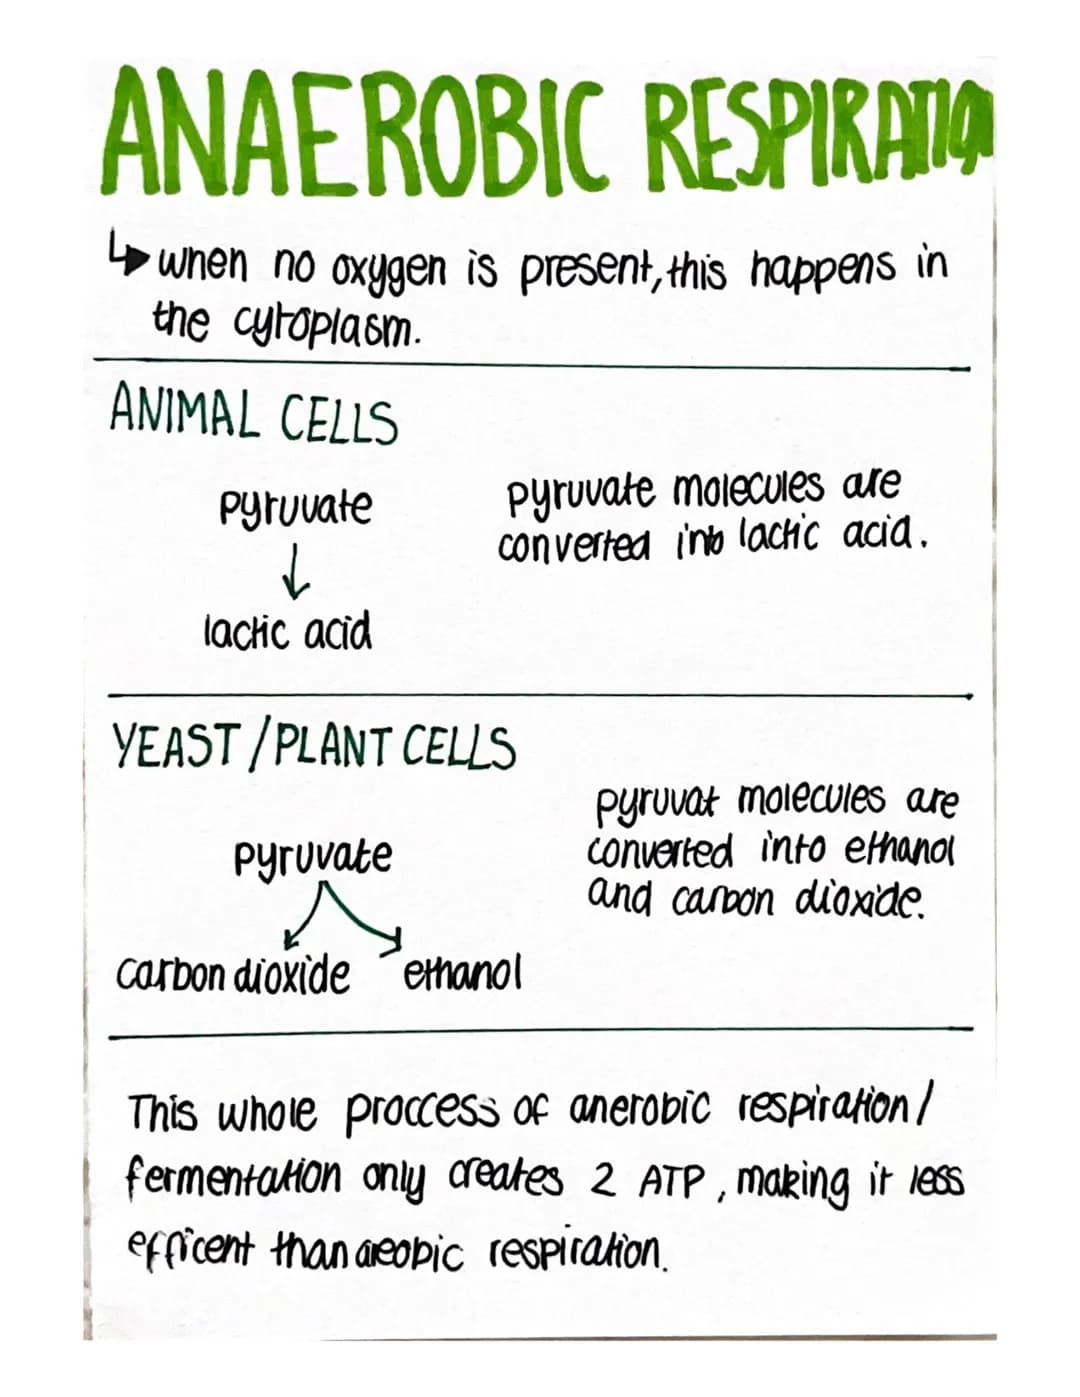 ANAEROBIC RESPIRATION
↳ when no oxygen is present, this happens in
the cytoplasm.
ANIMAL CELLS
pyruvate
↓
lactic acid
pyruvate molecules are
converted into lactic acid.
YEAST/PLANT CELLS
pyruvate
carbon dioxide ethanol
pyruvat molecules are
converted into ethanol
and carbon dioxide.
This whole proccess of anerobic respiration/
fermentation only creates 2 ATP, making it less
efficent than areobic respiration.